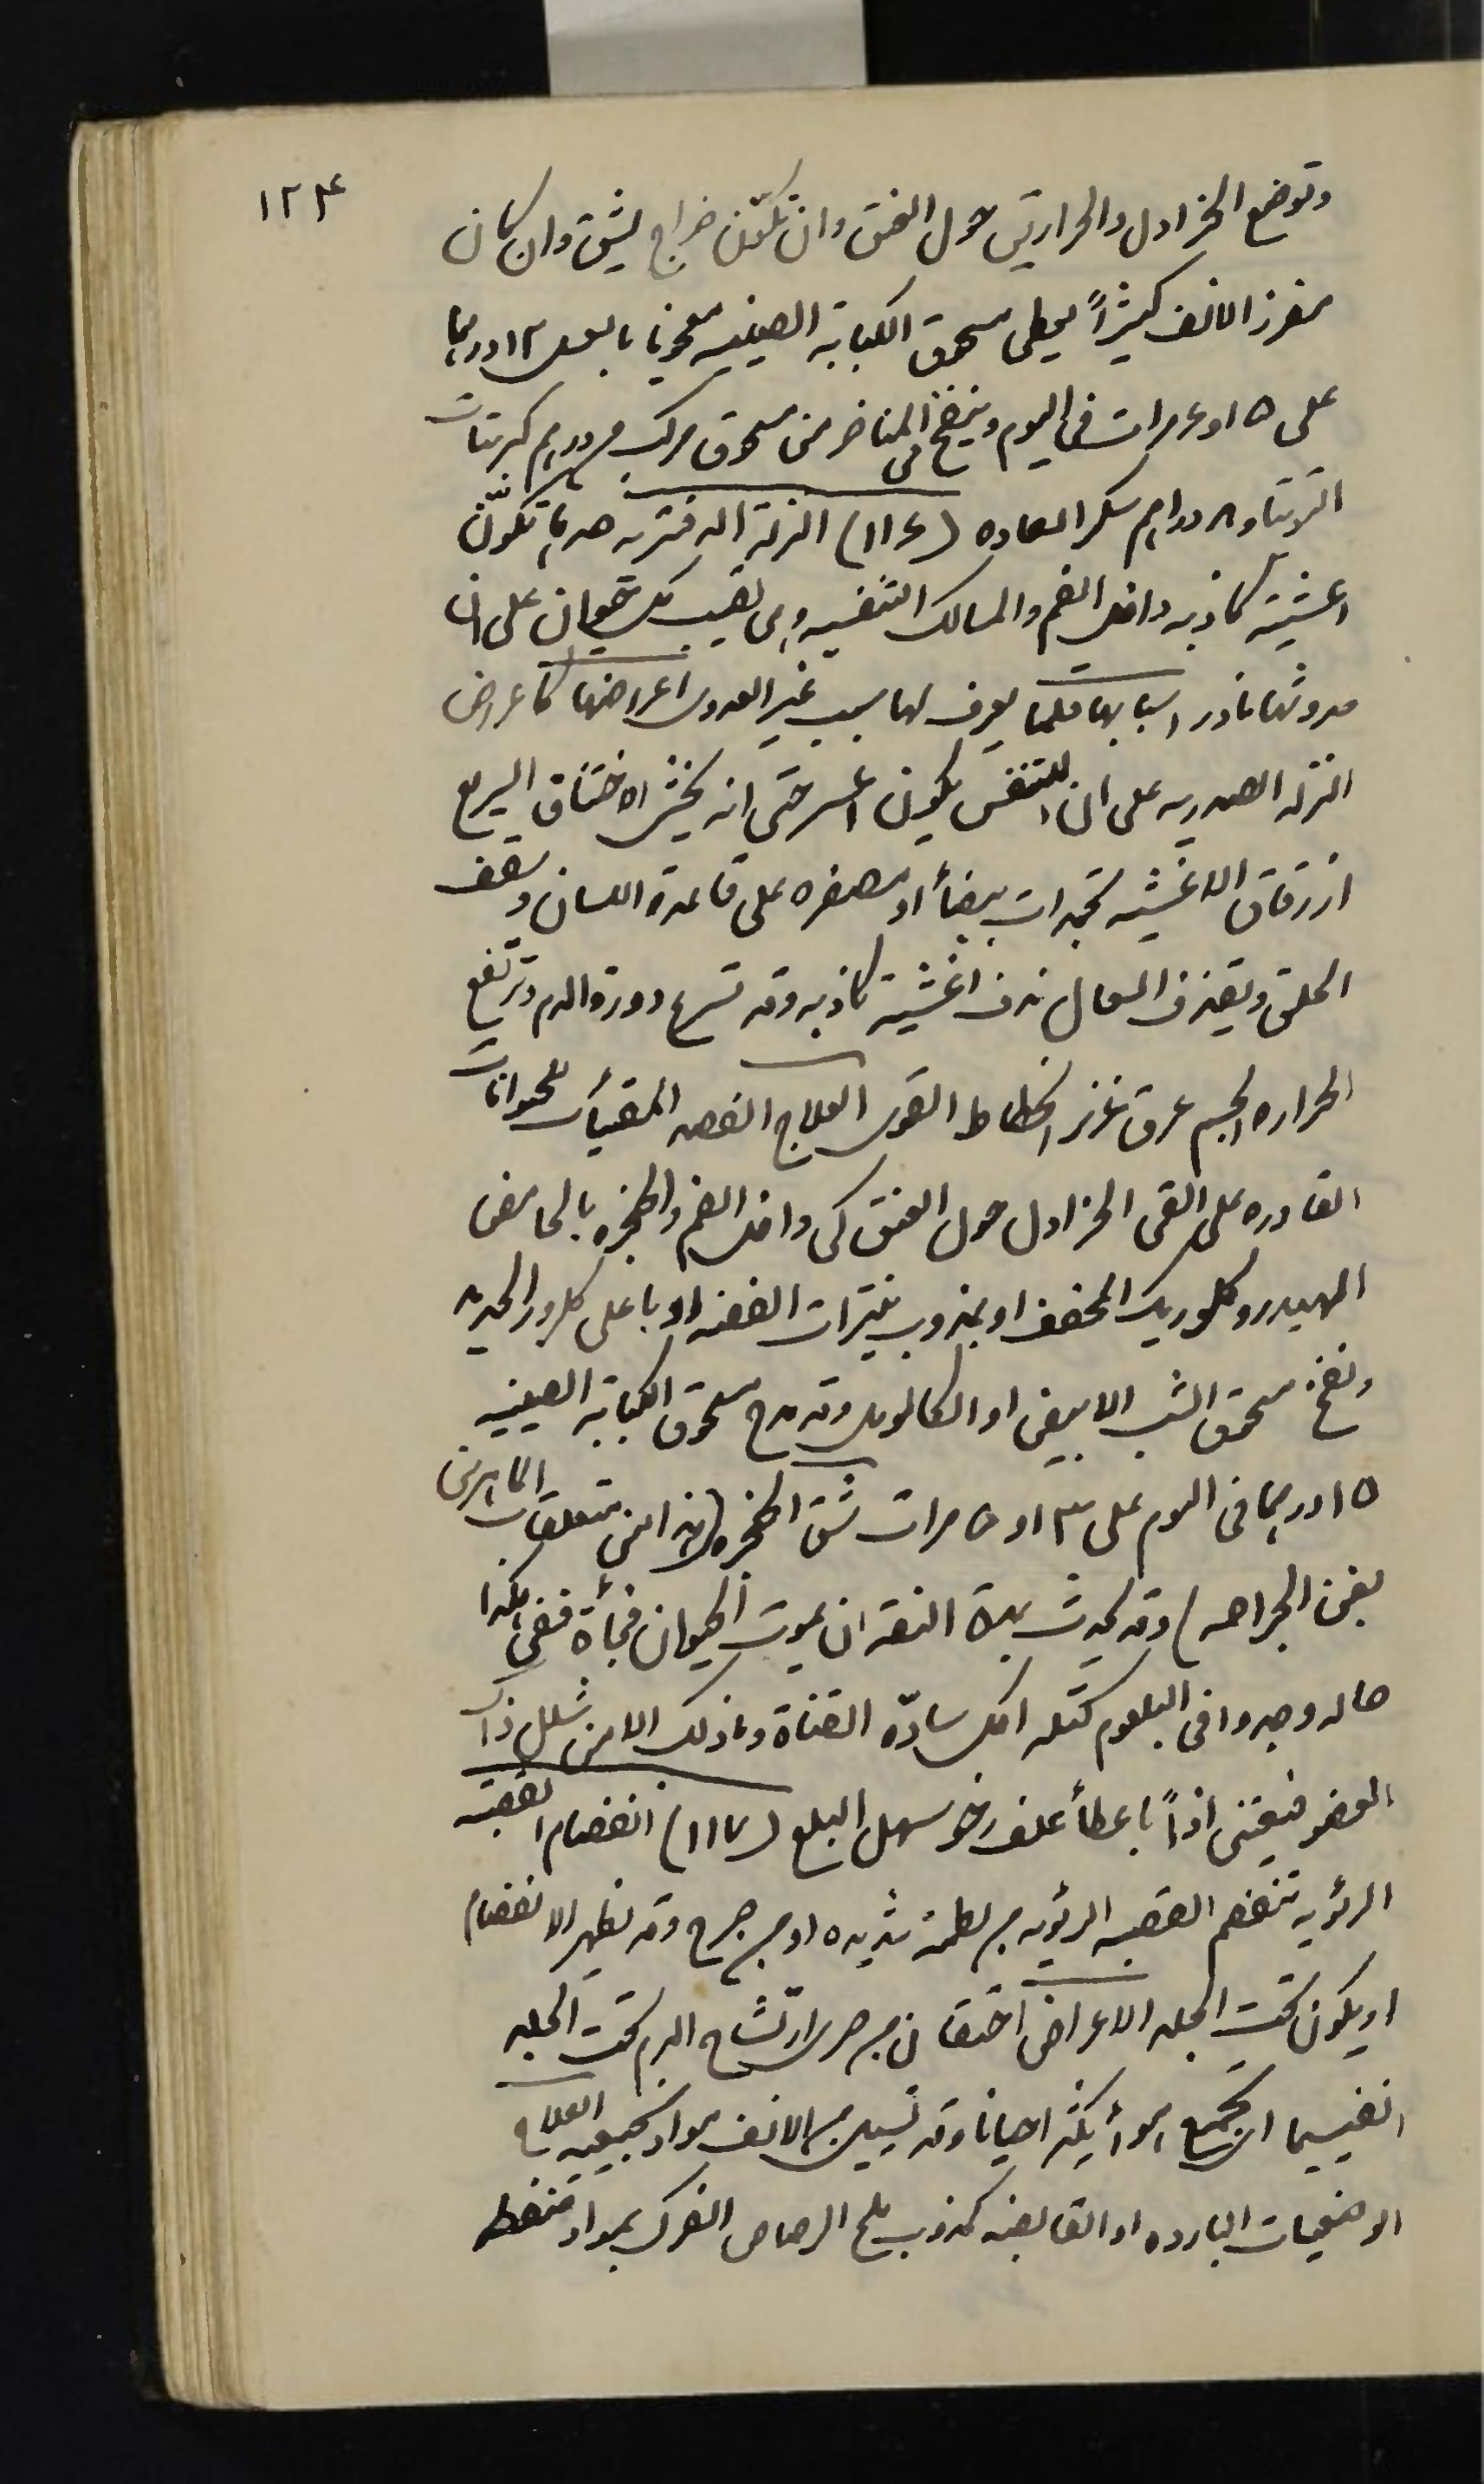 ١٢٤
وتوضع الخزادل والحراريق حول العنق وان تكوّن خراج يشق وان كان
مفرز الانف كثيراً يعطى مسحوق الكبابة الصينيه معجونا بالعسل ١٢ درهما
على ٥ او ٤ مرات في اليوم وينفخ في المناخر من مسحوق مركب من درهم كبريتات
التوتيا و ٨ دراهم سكر العاده (١١٤) النزلة الدفتريه هى ما تكوّن
اغشية كاذبه داخل الفم والمسالك التنفسيه وهى تصيب كل حيوان على ان
حدوثها نادر اسبابها قلما يعرف لها سبب غير العدوى اعراضها كاعراض
النزله الصدريه على ان التنفس يكون اعسر حتى انه يخشى الاختناق السريع
ازرقاق الاغشيه تحببات بيضأ او مصفره على قاعدة اللسان وسقف
الحلق ويقذف السعال ندف اغشية كاذبه وقد تسرع دورة الدم وترتفع
الحراره الجسم عرق غزير انحطاط القوى العلاج الفصد المقيأت للحيوانات
القادره على القى الخزادل حول العنق كى داخل الفم والحنجره بالحامض
الهيدروكلوريك المخفف او بمذوب نيترات الفضه او باعلى كلورور الحديد
ونفخ مسحوق الشب الابيض او الكالوميل وقد مدح مسحوق الكبابة الصينيه
١٥ درهما في اليوم على ٣ او ٥ مرات شق الحنجره (هذا من متعلقات الماهرين
بفن الجراحه) وقد يحدث بهذه النقه ان يموت الحيوان فجأة ففى هكذا
حاله وجدوا في البلعوم كتله اكل سادّه القناة وما ذلك الا من شلل ذاك
العضو فيعتنى اذاً باعطأ علف رخو سهل البلع (١١٧) انفصام القصبة
الرئويه تنفصم القصبه الرئويه من لطمة شديده او من جرح وقد يظهر الانفصام
او يكون تحت الجلد الاعراض اختقان من جرى ارتشاح الدم تحت الجلد
انفيسيما اى تجمع هوأ يكثر احيانا وقد تسيل من الانف مواد نجيعيه العلاج
الوضعيات البارده او القابضه كمذوب ملح الرصاص الفرك بمواد منفطه